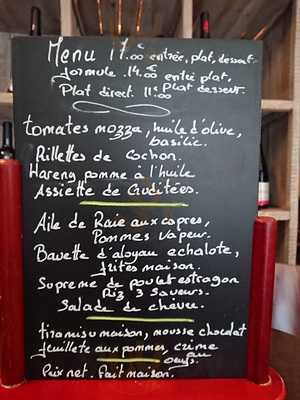 Menu 17.00 entrée, plat, dessert.
formule .14.00 € entré plat,
Plat direct. 11.00 Plat dessert.
tomates mozza, huile d'olive,
basilic.
Rillettes de Cochon.
Hareng pomme à l'huile
Assiette de Cruditées.
Aile de Raie aux capres,
Pommes vapeur.
Bavette d'aloyau echalote,
frites maison.
Supreme de poulet estragon
Riz 3 Saveurs.
Salade de chèvre.
tiramisu maison, mousse chocolat
feuilleté aux pommes, crème
au
oeufs.
Prix net. Fait maison.